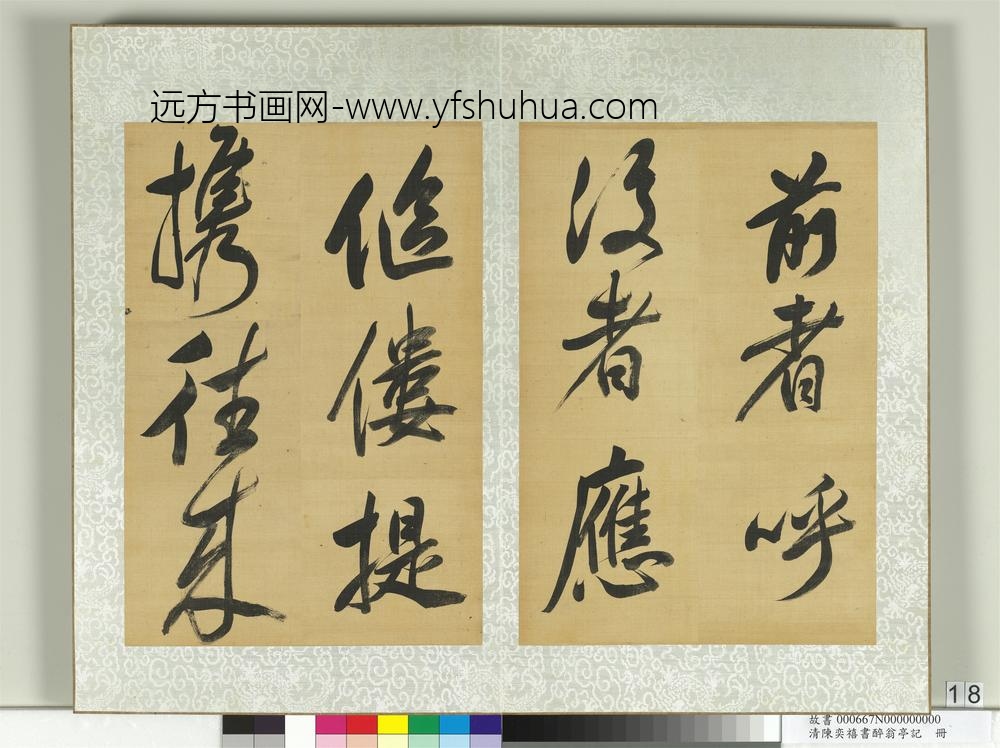 远方书画网-www.yfshuhua.com
前者呼
後者應
傴僂提
携往来
18
故書 000667N000000000
清陳奕禧書醉翁亭記 冊